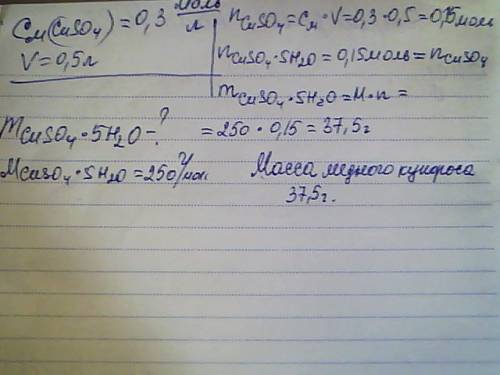 Cм(CuSO4) = 0,3 моль/л
V = 0,5л
nCuSO4 = Cм · V = 0,3 · 0,5 = 0,15 моль
nCuSO4 · 5H2O = 0,15 моль = nCuSO4
mCuSO4 · 5H2O = M · n =
= 250 · 0,15 = 37,5г
mCuSO4 · 5H2O - ?
MCuSO4 · 5H2O = 250 г/мол
Масса медного купороса
37,5г.